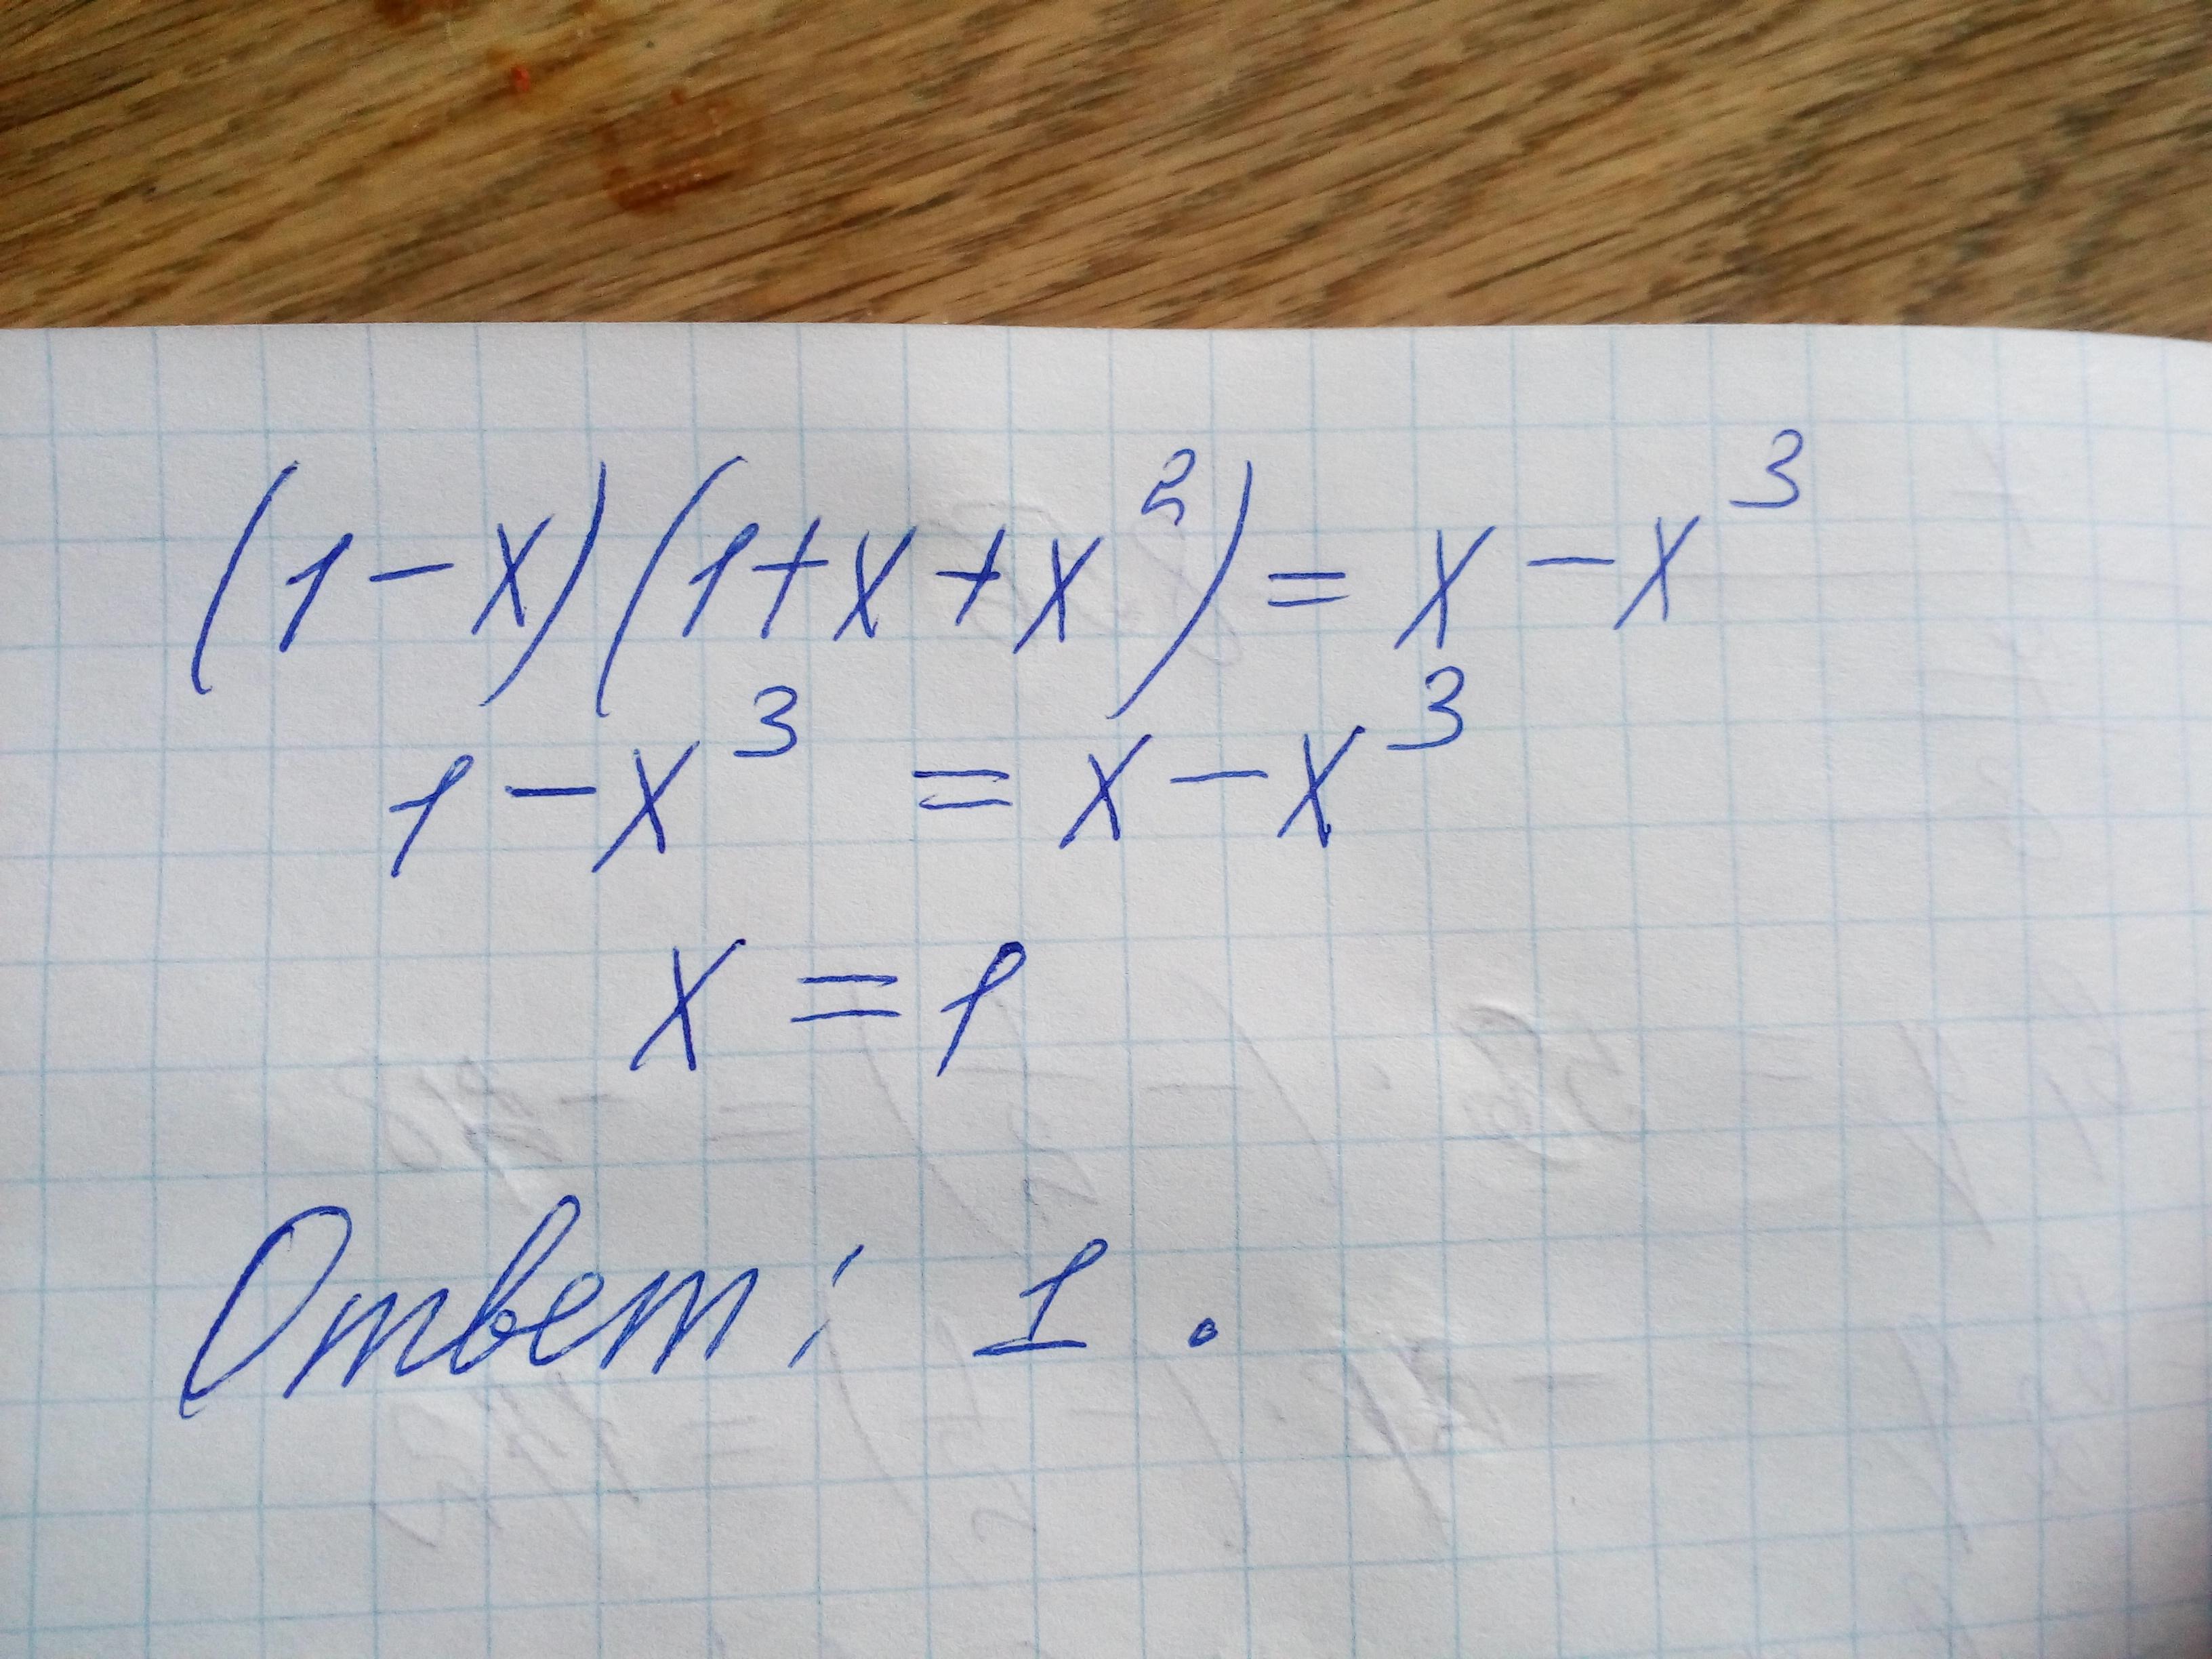 (1-x)(1+x+x²)=x-x³
1-x³=x-x³
x=1
Ответ: 1.